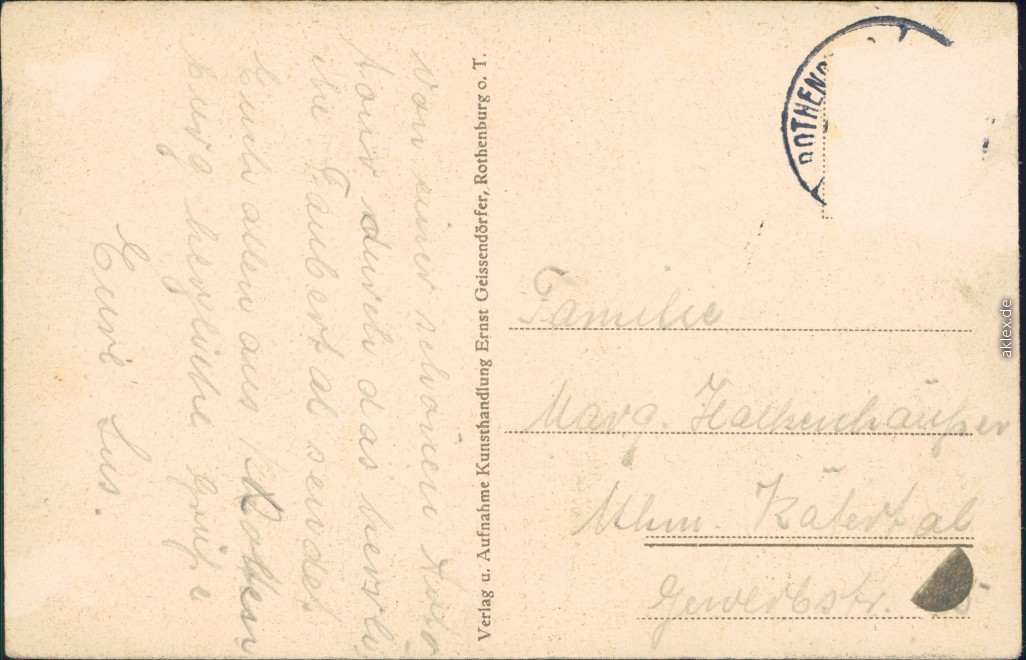 von einer schönen Auto
tour durch das herrli
che Taubertal sendet
Euch allen aus Rothen
burg herzliche Grüße
Eure Lus.
Verlag u. Aufnahme Kunsthandlung Ernst Geissendörfer, Rothenburg o. T.
ROTHENB
Familie
Marg.
Mhm. Käfertal
str.
aklex.de